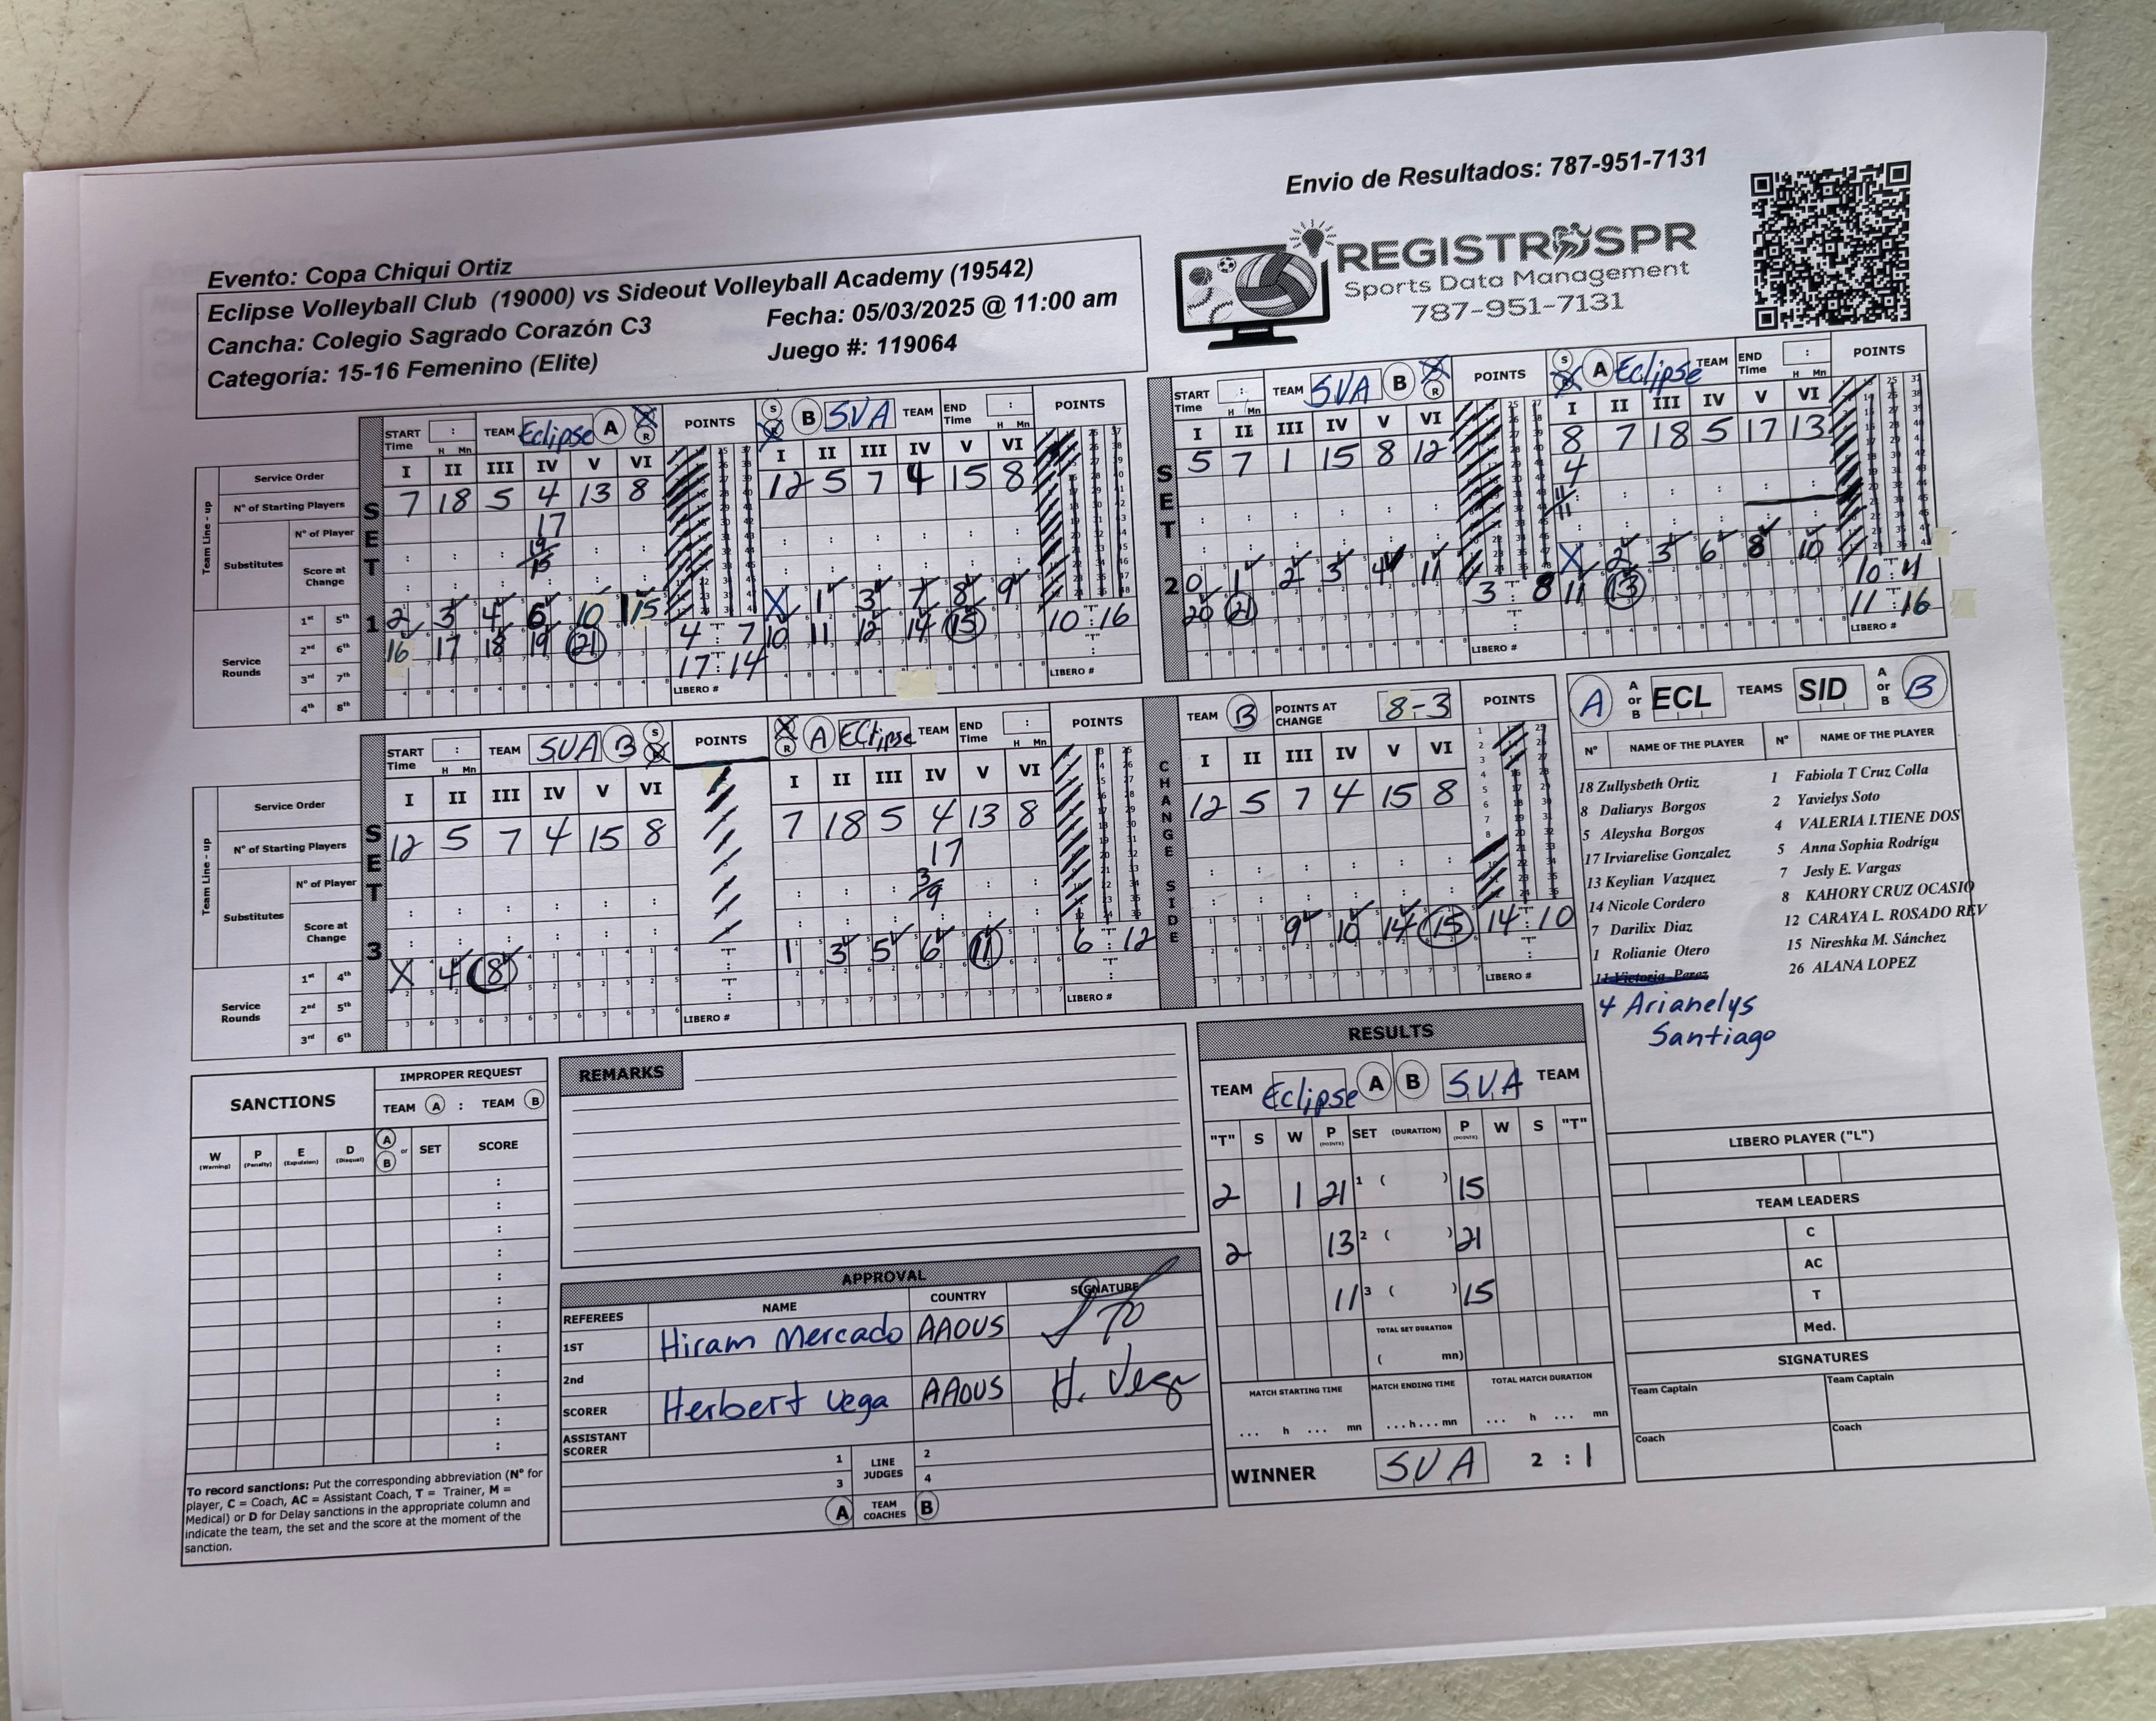 Envio de Resultados: 787-951-7131
REGISTROSPR
Sports Data Management
787-951-7131
Evento: Copa Chiqui Ortiz
Eclipse Volleyball Club (19000) vs Sideout Volleyball Academy (19542)
Cancha: Colegio Sagrado Corazón C3
Fecha: 05/03/2025 @ 11:00 am
Categoría: 15-16 Femenino (Elite)
Juego #: 119064
SET 1
START Time H Mn TEAM Eclipse A S R POINTS
S R B SVA TEAM END Time H Mn POINTS
Service Order I II III IV V VI
I II III IV V VI
Team Line-up
N° of Starting Players 7 18 5 4 13 8
12 5 7 4 15 8
Substitutes N° of Player 17
Score at Change
Service Rounds
1st 5th 2 3 4 6 10 15
X 1 3 7 8 9
2nd 6th 16 17 18 19 21
10 11 12 14 15
3rd 7th
4th 8th
"T" 4 : 7
17 : 14
LIBERO #
"T" 10 : 16
LIBERO #
SET 2
START Time H Mn TEAM SVA B S R POINTS
S R A Eclipse TEAM END Time H Mn POINTS
I II III IV V VI
I II III IV V VI
5 7 1 15 8 12
8 7 18 5 17 13
4
0 1 2 3 4 11
X 2 3 6 8 10
20 21
11 13
"T" 3 : 8
LIBERO #
10 : 4
11 : 16
LIBERO #
SET 3
START Time H Mn TEAM SVA B S R POINTS
S R A Eclipse TEAM END Time H Mn POINTS
CHANGE SIDE
TEAM B POINTS AT CHANGE 8-3 POINTS
Service Order I II III IV V VI
I II III IV V VI
I II III IV V VI
Team Line-up
N° of Starting Players 12 5 7 4 15 8
7 18 5 4 13 8
12 5 7 4 15 8
Substitutes N° of Player
17
Score at Change
3/9
Service Rounds
1st 4th X 4 8
1 3 5 6 11
9 10 14 15
2nd 5th
3rd 6th
"T" LIBERO #
"T" 6 : 12
LIBERO #
"T" 14 : 10
LIBERO #
A A or B ECL TEAMS SID A or B B
N° NAME OF THE PLAYER N° NAME OF THE PLAYER
18 Zullysbeth Ortiz
8 Daliarys Borgos
5 Aleysha Borgos
17 Irviarelise Gonzalez
13 Keylian Vazquez
14 Nicole Cordero
7 Darilix Diaz
1 Rolianie Otero
11 Victoria Perez
4 Arianelys
Santiago
1 Fabiola T Cruz Colla
2 Yavielys Soto
4 VALERIA I.TIENE DOS
5 Anna Sophia Rodrígu
7 Jesly E. Vargas
8 KAHORY CRUZ OCASIO
12 CARAYA L. ROSADO REV
15 Nireshka M. Sánchez
26 ALANA LOPEZ
LIBERO PLAYER ("L")
TEAM LEADERS
C
AC
T
Med.
SIGNATURES
Team Captain Team Captain
Coach Coach
SANCTIONS
IMPROPER REQUEST
TEAM A : TEAM B
W (Warning) P (Penalty) E (Expulsion) D (Disqual) A or B SET SCORE
To record sanctions: Put the corresponding abbreviation (N° for
player, C = Coach, AC = Assistant Coach, T = Trainer, M =
Medical) or D for Delay sanctions in the appropriate column and
indicate the team, the set and the score at the moment of the
sanction.
REMARKS
APPROVAL
REFEREES NAME COUNTRY SIGNATURE
1ST Hiram Mercado AAOVS
2nd
SCORER Herbert Vega AAOVS H. Vega
ASSISTANT SCORER
1 LINE JUDGES 2
3 4
A TEAM COACHES B
RESULTS
TEAM Eclipse A B SVA TEAM
"T" S W P (POINTS) SET (DURATION) P (POINTS) W S "T"
2 1 21 1 ( ) 15
2 13 2 ( ) 21
11 3 ( ) 15
TOTAL SET DURATION
( mn)
MATCH STARTING TIME MATCH ENDING TIME TOTAL MATCH DURATION
... h ... mn ... h ... mn ... h ... mn
WINNER SVA 2 : 1